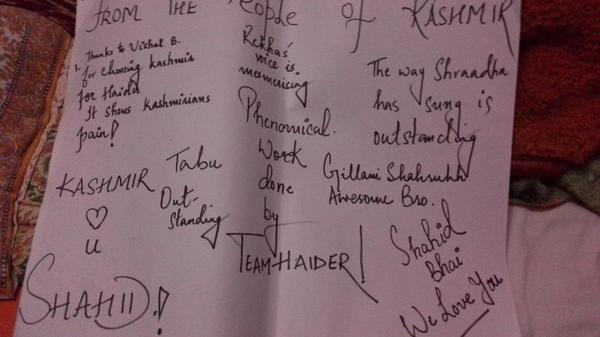 FROM THE PEOPLE of KASHMIR
1. Thanks to Vishal B.
for choosing kashmir
for Haider
It shows kashmirians
pain!
Rekha's
voice is
mesmerising
The way Shraadha
has sung is
outstanding
Phenomical
Work
done
by
TEAM HAIDER!
Tabu
Out-
Standing
Gillani Shahrukh
Awesome Bro.
KASHMIR
♡
u
SHAHID!
Shahid
Bhai
We Love You